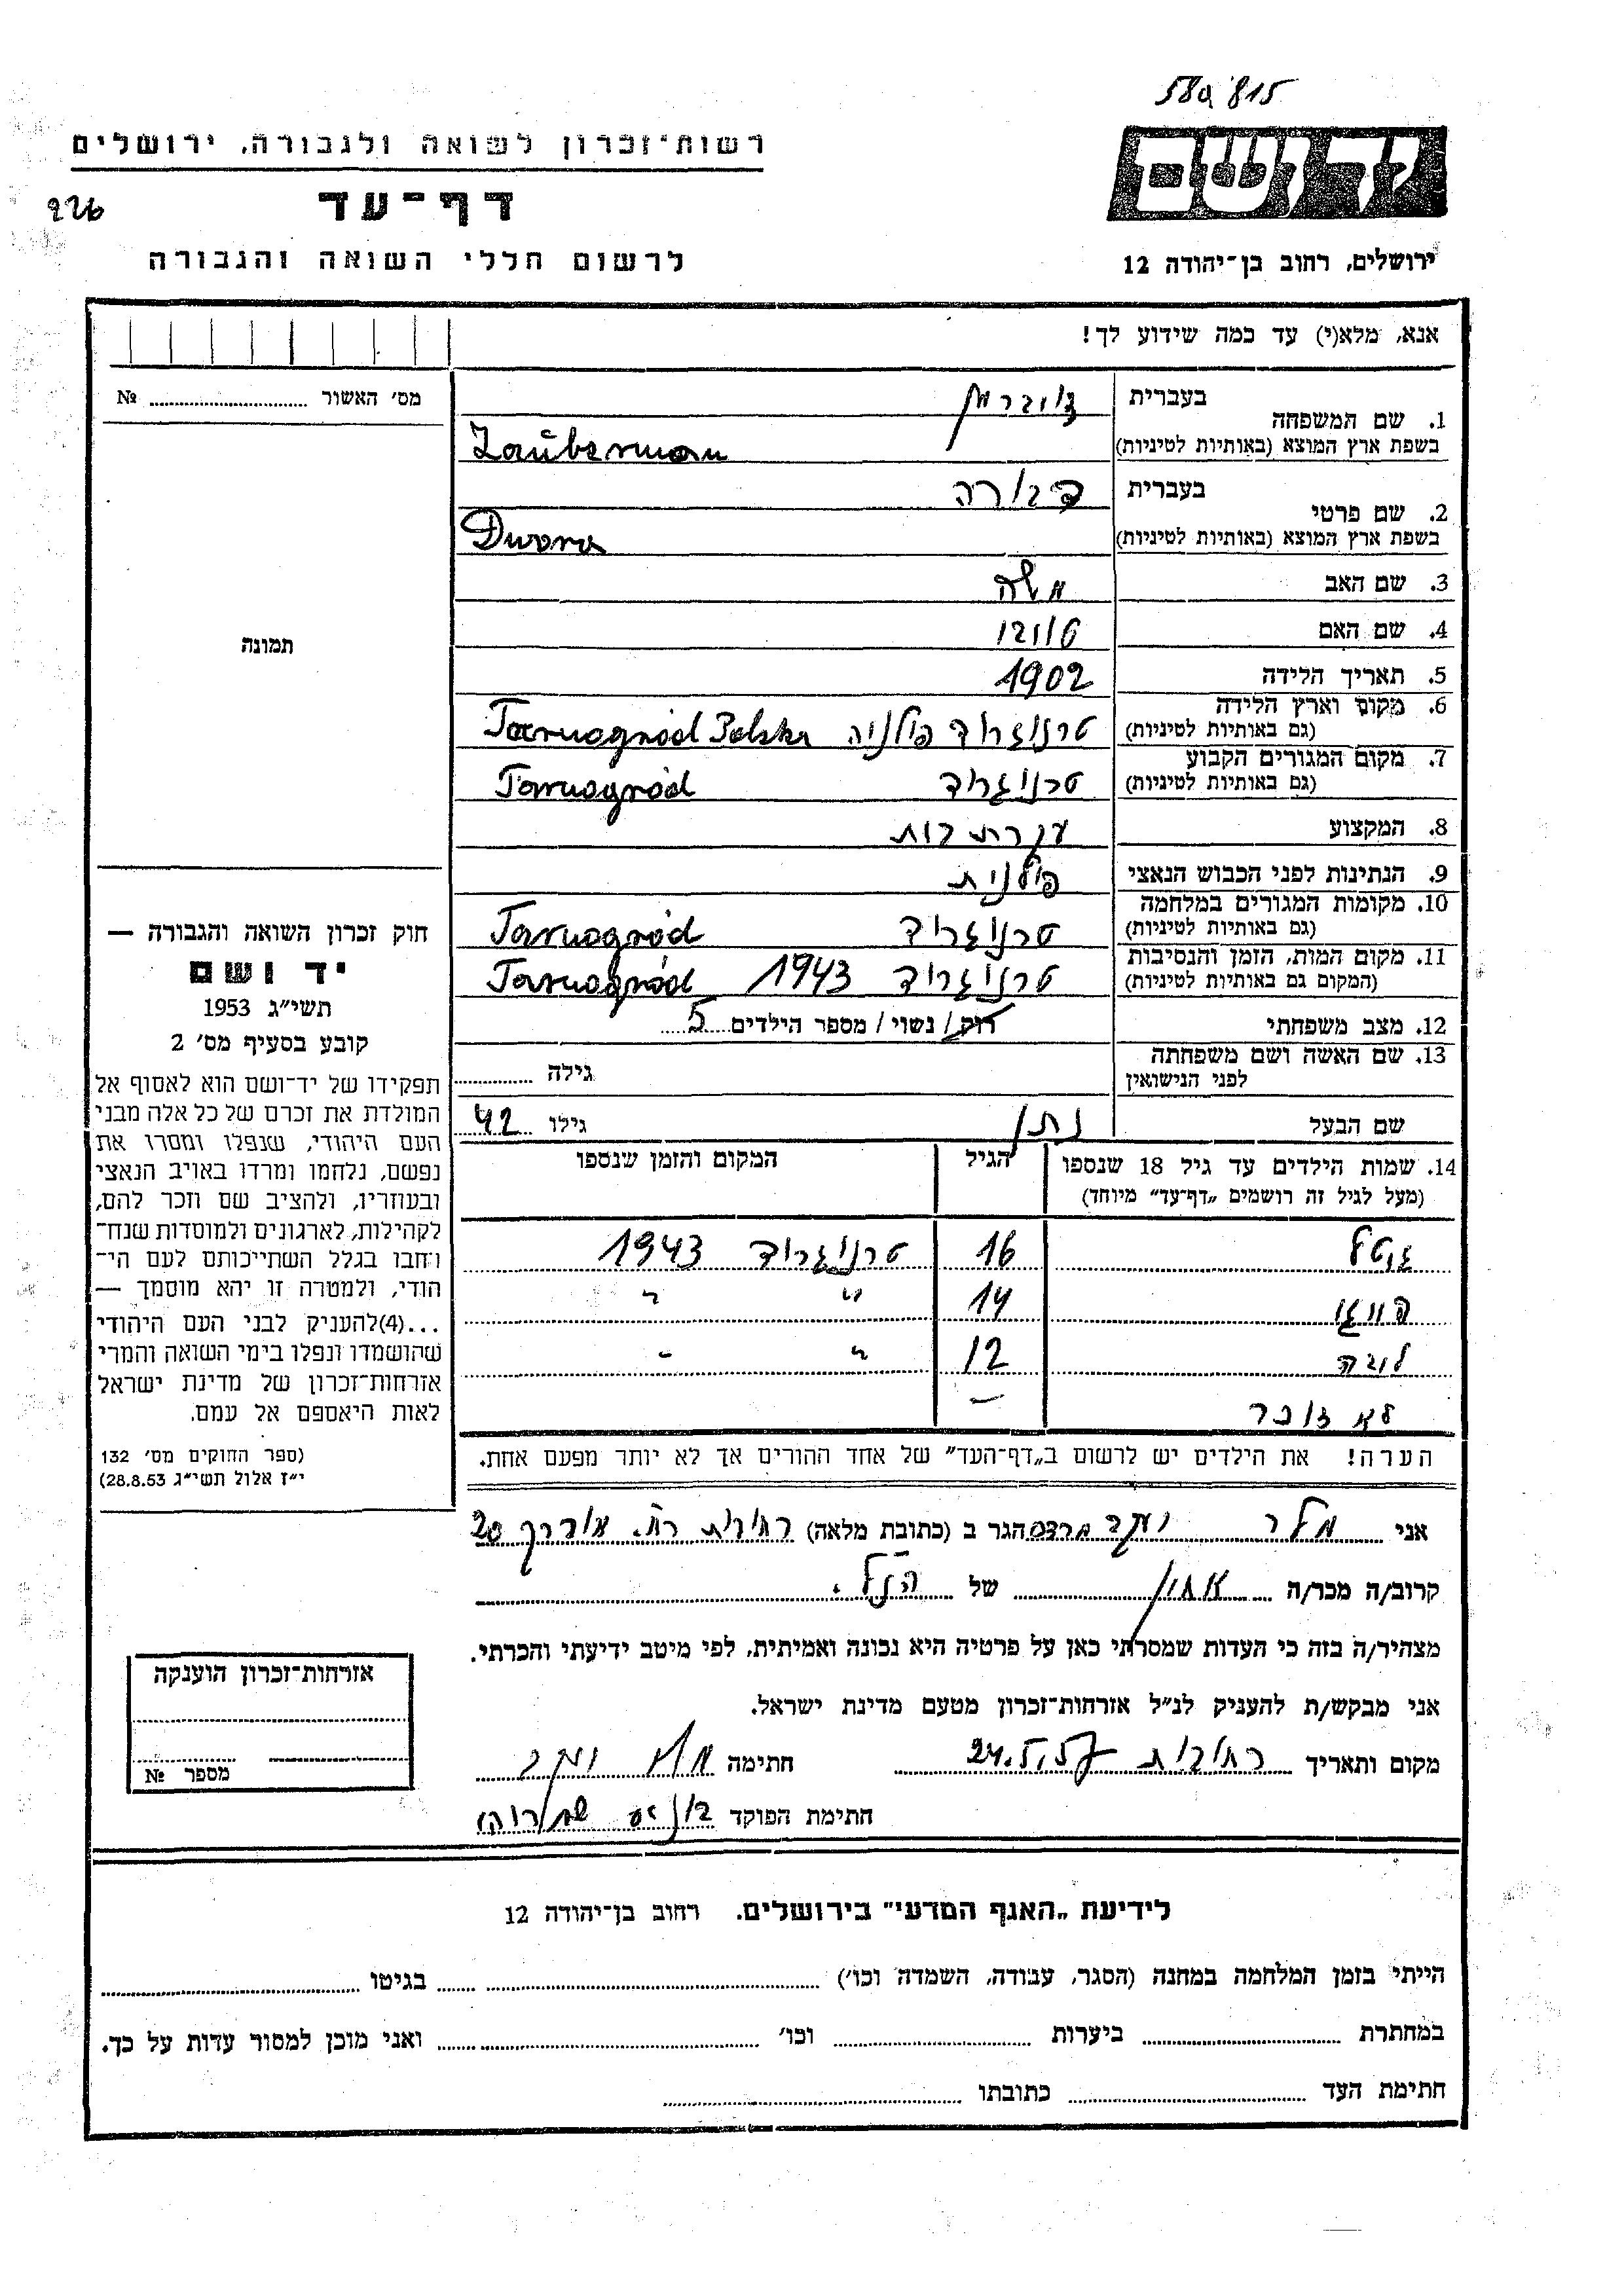 58a 815
ידושם
רשות־זכרון לשואה ולגבורה, ירושלים
226
דף־עד
ירושלים, רחוב בן־יהודה 12
לרשום חללי השואה והגבורה
אנא, מלא(י) עד כמה שידוע לך!
מס׳ האשור № ........
1. שם המשפחה
בעברית צוברמן
בשפת ארץ המוצא (באותיות לטיניות) Zauberman
2. שם פרטי
בעברית דבורה
בשפת ארץ המוצא (באותיות לטיניות) Dwora
3. שם האב משה
4. שם האם טובי
5. תאריך הלידה 1902
6. מקום וארץ הלידה
(גם באותיות לטיניות) טרנוגרוד פולניה Tarnogród Polska
7. מקום המגורים הקבוע
(גם באותיות לטיניות) טרנוגרוד Tarnogród
8. המקצוע עקרת בית
9. הנתינות לפני הכבוש הנאצי פולנית
10. מקומות המגורים במלחמה
(גם באותיות לטיניות) טרנוגרוד Tarnogród
11. מקום המות, הזמן והנסיבות
(המקום גם באותיות לטיניות) טרנוגרוד 1943 Tarnogród
12. מצב משפחתי רוק / נשוי / מספר הילדים 5
13. שם האשה ושם משפחתה
לפני הנישואין גילה ........
שם הבעל נתן גילו 42
תמונה
14. שמות הילדים עד גיל 18 שנספו הגיל המקום והזמן שנספו
(מעל לגיל זה רושמים „דף־עד״ מיוחד)
גיטל 16 טרנוגרוד 1943
14 ״ ״
12 ״ ״
לא זוכר —
הערה! את הילדים יש לרשום ב„דף־העד״ של אחד ההורים אך לא יותר מפעם אחת.
חוק זכרון השואה והגבורה —
יד ושם
תשי״ג 1953
קובע בסעיף מס׳ 2
תפקידו של יד־ושם הוא לאסוף אל
המולדת את זכרם של כל אלה מבני
העם היהודי, שנפלו ומסרו את
נפשם, נלחמו ומרדו באויב הנאצי
ובעוזריו, ולהציב שם וזכר להם,
לקהילות, לארגונים ולמוסדות שנח־
רבו בגלל השתייכותם לעם הי־
הודי, ולמטרה זו יהא מוסמך —
...(4) להעניק לבני העם היהודי
שהושמדו ונפלו בימי השואה והמרי
אזרחות־זכרון של מדינת ישראל
לאות היאספם אל עמם.
(ספר החוקים מס׳ 132
י״ז אלול תשי״ג 28.8.53)
אני מלר יעקב הגר ב (כתובת מלאה) רחובות רח. 20
קרוב/ה מכר/ה של הנ״ל.
מצהיר/ה בזה כי העדות שמסרתי כאן על פרטיה היא נכונה ואמיתית, לפי מיטב ידיעתי והכרתי.
אני מבקש/ת להעניק לנ״ל אזרחות־זכרון מטעם מדינת ישראל.
מקום ותאריך רחובות 24.5.57 חתימה
חתימת הפוקד
אזרחות־זכרון הוענקה
מספר №
לידיעת „האגף המדעי״ בירושלים. רחוב בן־יהודה 12
הייתי בזמן המלחמה במחנה (הסגר, עבודה, השמדה וכו׳) ........ בגיטו ........
במחתרת ........ ביערות ........ וכו׳ ........ ואני מוכן למסור עדות על כך.
חתימת העד ........ כתובתו ........